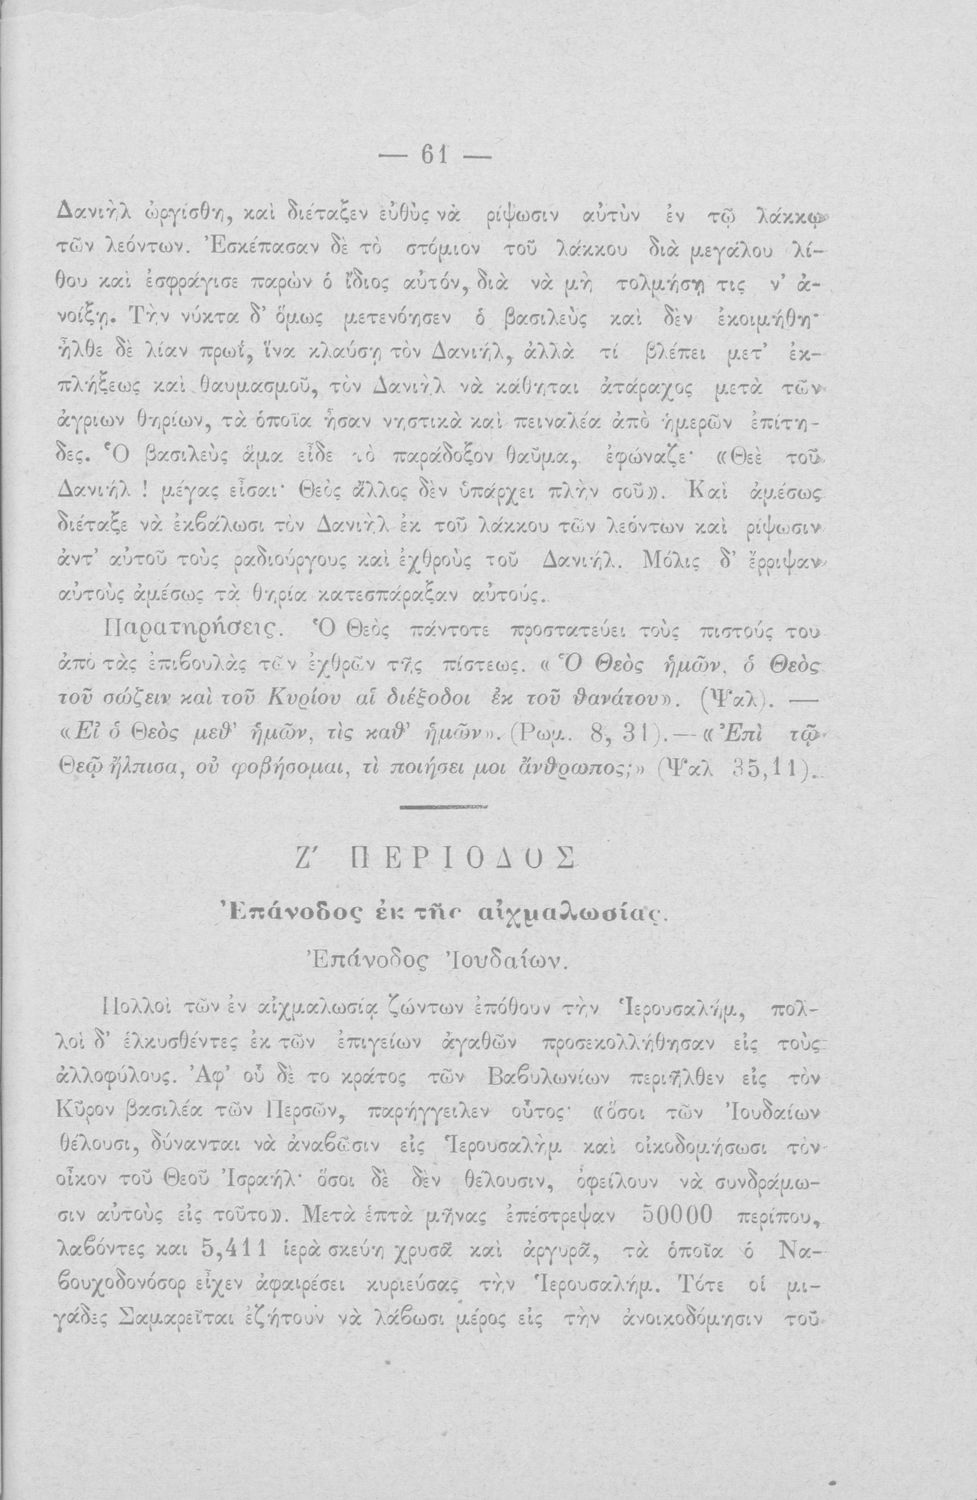 — 61 —
Δανιὴλ ὠργίσθη, καὶ διέταξεν εὐθὺς νὰ ρίψωσιν αὐτὺν ἐν τῷ λάκκῳ
τῶν λεόντων. Ἐσκέπασαν δὲ τὸ στόμιον τοῦ λάκκου διὰ μεγάλου λί-
θου καὶ ἐσφράγισε παρὼν ὁ ἴδιος αὐτόν, διὰ νὰ μὴ τολμήσῃ τις ν’ ἀ-
νοίξῃ. Τὴν νύκτα δ’ ὅμως μετενόησεν ὁ βασιλεὺς καὶ δὲν ἐκοιμήθη·
ἦλθε δὲ λίαν πρωΐ, ἵνα κλαύσῃ τὸν Δανιήλ, ἀλλὰ τί βλέπει μετ’ ἐκ-
πλήξεως καὶ θαυμασμοῦ, τὸν Δανιὴλ νὰ κάθηται ἀτάραχος μετὰ τῶν
ἀγρίων θηρίων, τὰ ὁποῖα ἦσαν νηστικὰ καὶ πειναλέα ἀπὸ ἡμερῶν ἐπίτη-
δες. Ὁ βασιλεὺς ἅμα εἶδε τὸ παράδοξον θαῦμα, ἐφώναζε· «Θεὲ τοῦ
Δανιήλ ! μέγας εἶσαι· Θεὸς ἄλλος δὲν ὑπάρχει πλὴν σοῦ». Καὶ ἀμέσως
διέταξε νὰ ἐκβάλωσι τὸν Δανιὴλ ἐκ τοῦ λάκκου τῶν λεόντων καὶ ρίψωσιν
ἀντ’ αὐτοῦ τοὺς ραδιούργους καὶ ἐχθροὺς τοῦ Δανιήλ. Μόλις δ’ ἔρριψαν
αὐτοὺς ἀμέσως τὰ θηρία κατεσπάραξαν αὐτούς.
Παρατηρήσεις. Ὁ Θεὸς πάντοτε προστατεύει τοὺς πιστούς του
ἀπὸ τὰς ἐπιβουλὰς τῶν ἐχθρῶν τῆς πίστεως. «Ὁ Θεὸς ἡμῶν, ὁ Θεὸς
τοῦ σώζειν καὶ τοῦ Κυρίου αἱ διέξοδοι ἐκ τοῦ θανάτου». (Ψαλ). —
«Εἰ ὁ Θεὸς μεθ’ ἡμῶν, τὶς καθ’ ἡμῶν». (Ρωμ. 8, 31).—«Ἐπὶ τῷ
Θεῷ ἤλπισα, οὐ φοβήσομαι, τὶ ποιήσει μοι ἄνθρωπος;» (Ψαλ 35,11).
Ζ′ ΠΕΡΙΟΔΟΣ
Ἐπάνοδος ἐκ τῆς αἰχμαλωσίας.
Ἐπάνοδος Ἰουδαίων.
Πολλοὶ τῶν ἐν αἰχμαλωσίᾳ ζώντων ἐπόθουν τὴν Ἱερουσαλήμ, πολ-
λοὶ δ’ ἑλκυσθέντες ἐκ τῶν ἐπιγείων ἀγαθῶν προσεκολλήθησαν εἰς τοὺς
ἀλλοφύλους. Ἀφ’ οὗ δὲ το κράτος τῶν Βαβυλωνίων περιῆλθεν εἰς τὸν
Κῦρον βασιλέα τῶν Περσῶν, παρήγγειλεν οὗτος· «ὅσοι τῶν Ἰουδαίων
θέλουσι, δύνανται νὰ ἀναβῶσιν εἰς Ἱερουσαλὴμ καὶ οἰκοδομήσωσι τὸν
οἶκον τοῦ Θεοῦ Ἰσραήλ· ὅσοι δὲ δὲν θέλουσιν, ὀφείλουν νὰ συνδράμω-
σιν αὐτοὺς εἰς τοῦτο». Μετὰ ἑπτὰ μῆνας ἐπέστρεψαν 50000 περίπου,
λαβόντες και 5,411 ἱερὰ σκεύη χρυσᾶ καὶ ἀργυρᾶ, τὰ ὁποῖα ὁ Να-
βουχοδονόσορ εἶχεν ἀφαιρέσει κυριεύσας τὴν Ἱερουσαλήμ. Τότε οἱ μι-
γάδες Σαμαρεῖται ἐζήτουν νὰ λάβωσι μέρος εἰς τὴν ἀνοικοδόμησιν τοῦ